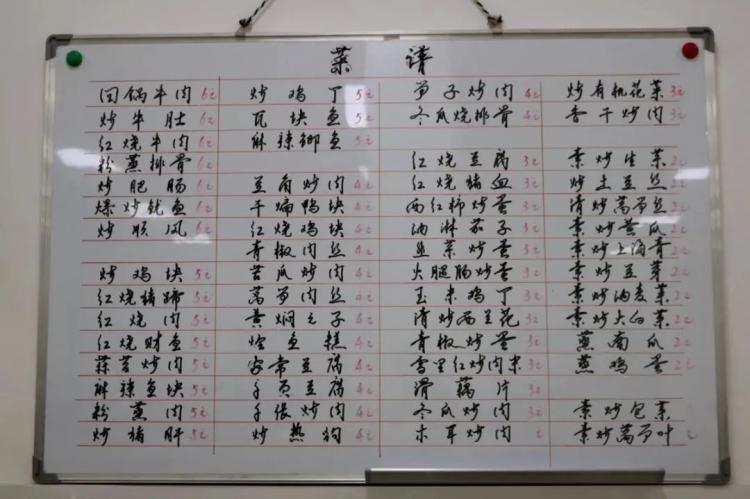 菜 谱
闷锅牛肉 6元
炒牛肚 6元
红烧牛肉 6元
粉蒸排骨 6元
炒肥肠 6元
爆炒鱿鱼 6元
炒顺风 6元
炒鸡块 5元
红烧猪蹄 5元
红烧肉 5元
红烧财鱼 5元
蒜苔炒肉 5元
麻辣鱼块 5元
粉蒸肉 5元
炒猪肝 5元
炒鸡丁 5元
瓦块鱼 5元
麻辣鲫鱼
豆角炒肉 4元
干煸鸭块 4元
红烧鸡块 4元
青椒肉丝 4元
苦瓜炒肉 4元
莴笋肉丝 4元
黄焖元子 4元
鱼糕 4元
家常豆腐 4元
千页豆腐 4元
千张炒肉 4元
炒热狗 4元
笋子炒肉 4元
冬瓜烧排骨 4元
红烧豆腐 3元
红烧猪血 3元
西红柿炒蛋 3元
油淋茄子 3元
韭菜炒蛋 3元
火腿肠炒蛋 3元
玉米鸡丁 3元
清炒西兰花 3元
青椒炒蛋 3元
雪里红炒肉末 3元
滑藕片 3元
冬瓜炒肉 3元
木耳炒肉 元
炒有机花菜 3元
香干炒肉 3元
素炒生菜 2元
炒土豆丝 2元
清炒莴笋丝 2元
素炒苦瓜 2元
素炒上海青 2元
素炒豆芽 2元
素炒油麦菜 2元
素炒大白菜 2元
蒸南瓜 2元
蒸鸡蛋 2元
素炒包菜 元
素炒莴笋叶 元